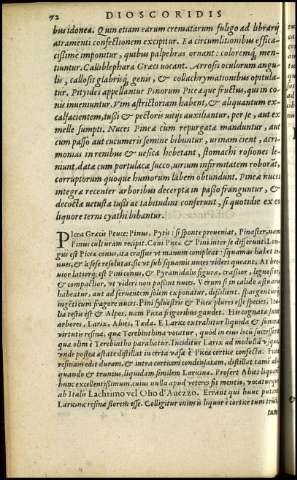 92 DIOSCORIDIS
bus idonea. Quin etiam earum crematarum fuligo ad librarij
atramenti confectionem excipitur. Ea circumlitionibus effica-
cissime imponitur, quibus palpebras ornant: coloremq́; men-
tiuntur. Calliblephara Græci uocant. Acrosis oculorum angu-
lis, gliffosis glabrisq́; genis, & collachrymationibus opitula-
tur. Pityides appellantur Pinorum Piceæque fructus, qui in co-
nis inueniuntur. Vim astrictoriam habent, & aliquantum ex-
calfacientem, tussi & pectoris uitijs auxiliantur, per se, aut ex
melle sumpti. Nuces Pineæ cum repurgatæ manduntur, aut
cum passo aut cucumeris semine bibuntur, urinam cient, acri-
monias in renibus & uesica hebetant, stomachi rosiones le-
niunt, datæ cum portulacæ succo, uirium infirmitatem roborāt,
corruptorum quoque humorū labem obtundunt. Pineæ nuces
integræ recenter arboribus decerptæ in passo franguntur, &
decoctæ uetusta tussi ac tabitudini conferunt, si quotidie ex eo
liquore terni cyathi bibantur.
PIcea Græcis Peuce: Pinus, Pytis: si sponte proueniat, Pinaster, nam
Pinus culturam recipit. Coni Piceæ & Pini inter se differunt: Lon-
gus est Piceæ conus, ita crassior ut manum compleat: squamas habet te-
nues, & ipse se resolubilis, sic ut sub squamis nuces uideri queant. At bre-
uior latiorq́; est Pini conus, & Pyramidalis figuræ, crassior, legnosus,
& compactior, ut uideri non possint nuces. Verum si in calido asseruati
habeatur, aut ad feruentem solem exponatur, dissiliunt, spargentes
iniectionem fragore nuces. Pini syluestris & Piceæ plures esse species, so-
la testis est & Alpes, nam Picea frigoribus gaudet. Hinc cognatæ sunt
arbores, Larix, Abies, Teda. E Larice extrahitur liquida & summæ
virtutis resina, quæ Terebinthina vocatur, quòd in eius loco successerit,
quæ olim è Terebintho parabatur. Inciditur Larix ad medullā usque,
unde postea astate distillat in certa vasa è Picea cortice confecta.
resinam edit duram, & intra corticem condensatam, distillat tamen ali-
quando & è trunciis, liquidam similem Laricinæ. Profert Abies liquorē
hunc excellentissimum, cuius nulla apud veteres sit mentio, vocaturque
ab Italis Lachrimo vel Olio d'Auezzo. Errant qui hunc putant
Laricinæ resinæ florem esse. Colligitur enim is liquor è cortice tum trūci
tum